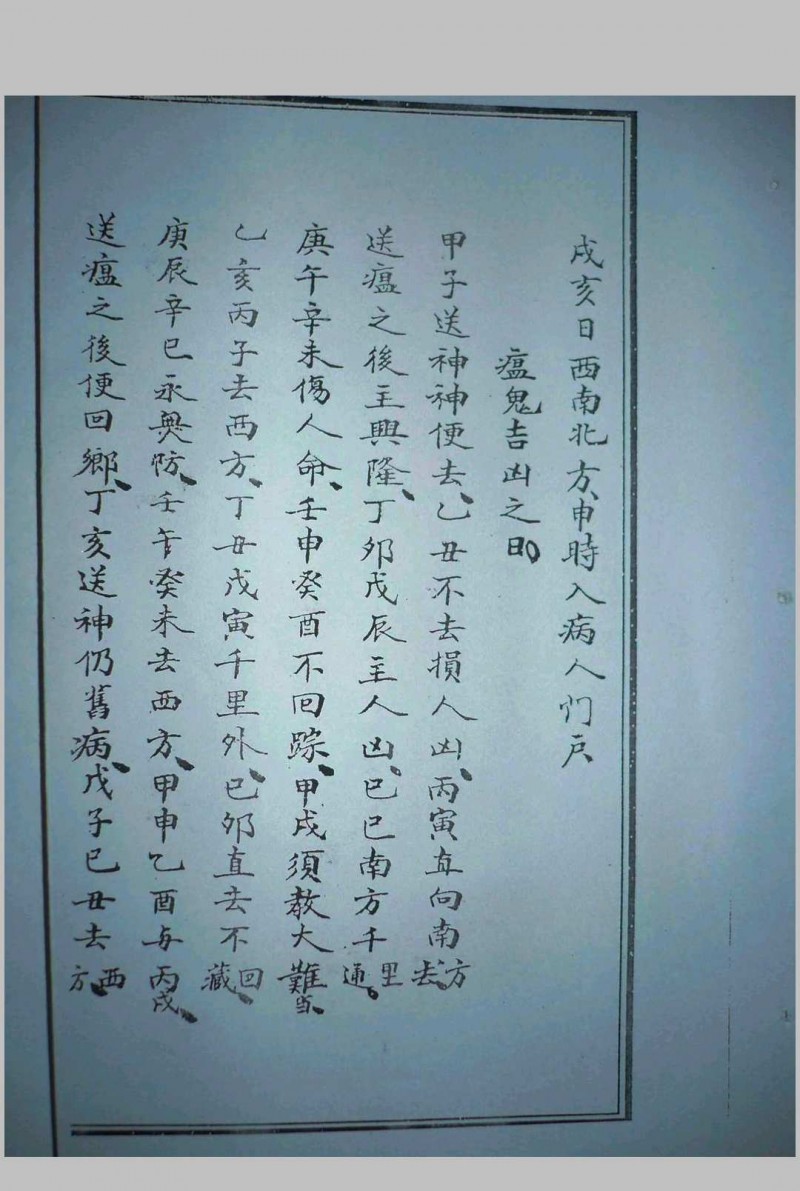 戌亥日西南北方、申時入病人们戶
瘟鬼吉凶之日
甲子送神神便去、乙丑不去損人凶、丙寅直向南方去、
送瘟之後主興隆、丁卯戊辰主人凶、巳巳南方千里通。
庚午辛未傷人命、壬申癸酉不回踪、甲戌須教大難当、
乙亥丙子去西方、丁丑戊寅千里外、巳卯直去不回藏、
庚辰辛巳永無防、壬午癸未去西方、甲申乙酉与丙戌、
送瘟之後便回鄉、丁亥送神仍舊病、戊子巳丑去西方、